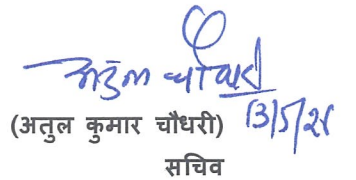 अतुल चौधरी
13/5/21
(अतुल कुमार चौधरी)
सचिव